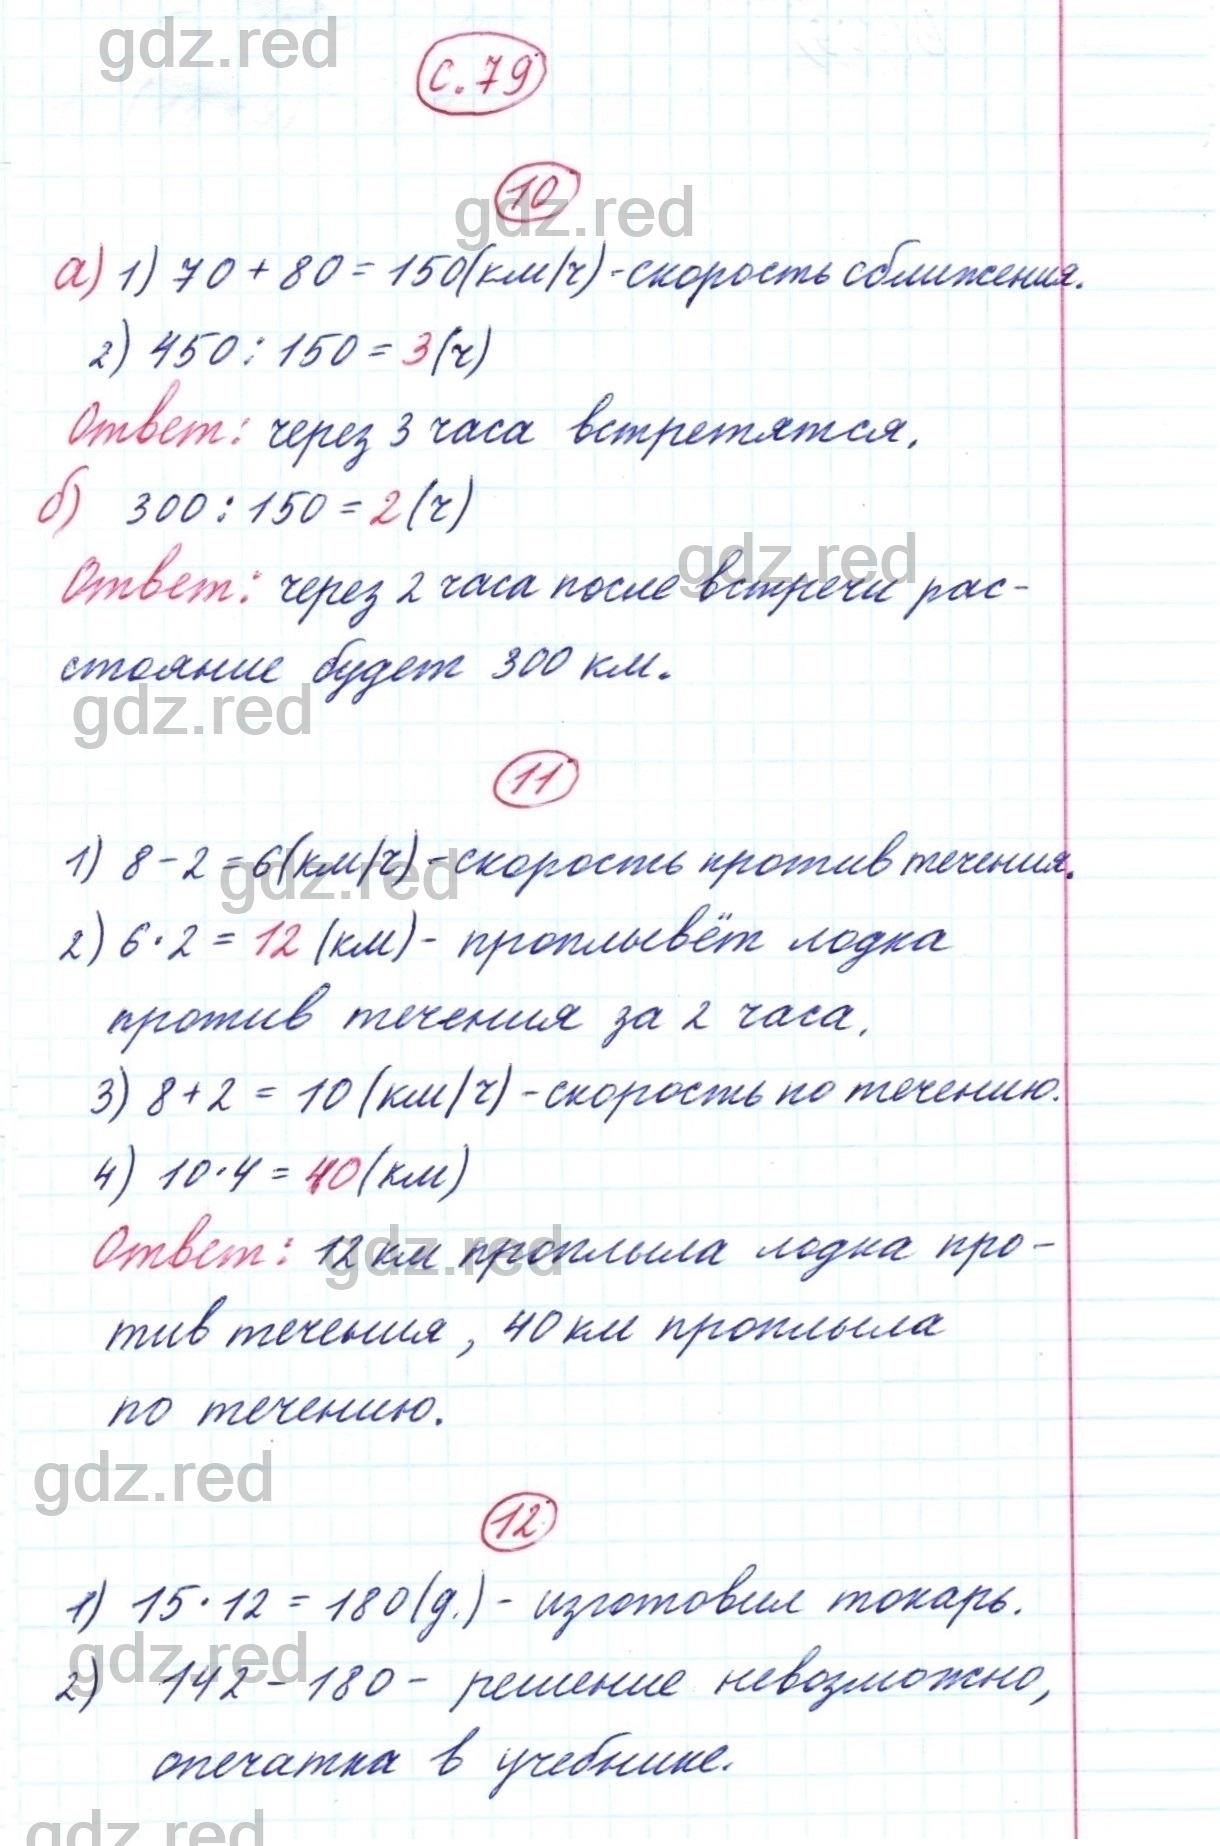 gdz.red
с. 79
10
gdz.red
а) 1) 70 + 80 = 150(км/ч) - скорость сближения.
2) 450 : 150 = 3(ч)
Ответ: через 3 часа встретятся.
б) 300 : 150 = 2(ч)
gdz.red
Ответ: через 2 часа после встречи рас-
стояние будет 300 км.
gdz.red
11
1) 8 - 2 = 6(км/ч) - скорость против течения.
gdz.red
2) 6 · 2 = 12 (км) - проплывёт лодка
против течения за 2 часа.
3) 8 + 2 = 10 (км/ч) - скорость по течению.
4) 10 · 4 = 40(км)
gdz.red
Ответ: 12 км проплыла лодка про-
тив течения, 40 км проплыла
по течению.
gdz.red
12
1) 15 · 12 = 180(д.) - изготовил токарь.
gdz.red
2) 142 - 180 - решение невозможно,
опечатка в учебнике.
gdz.red